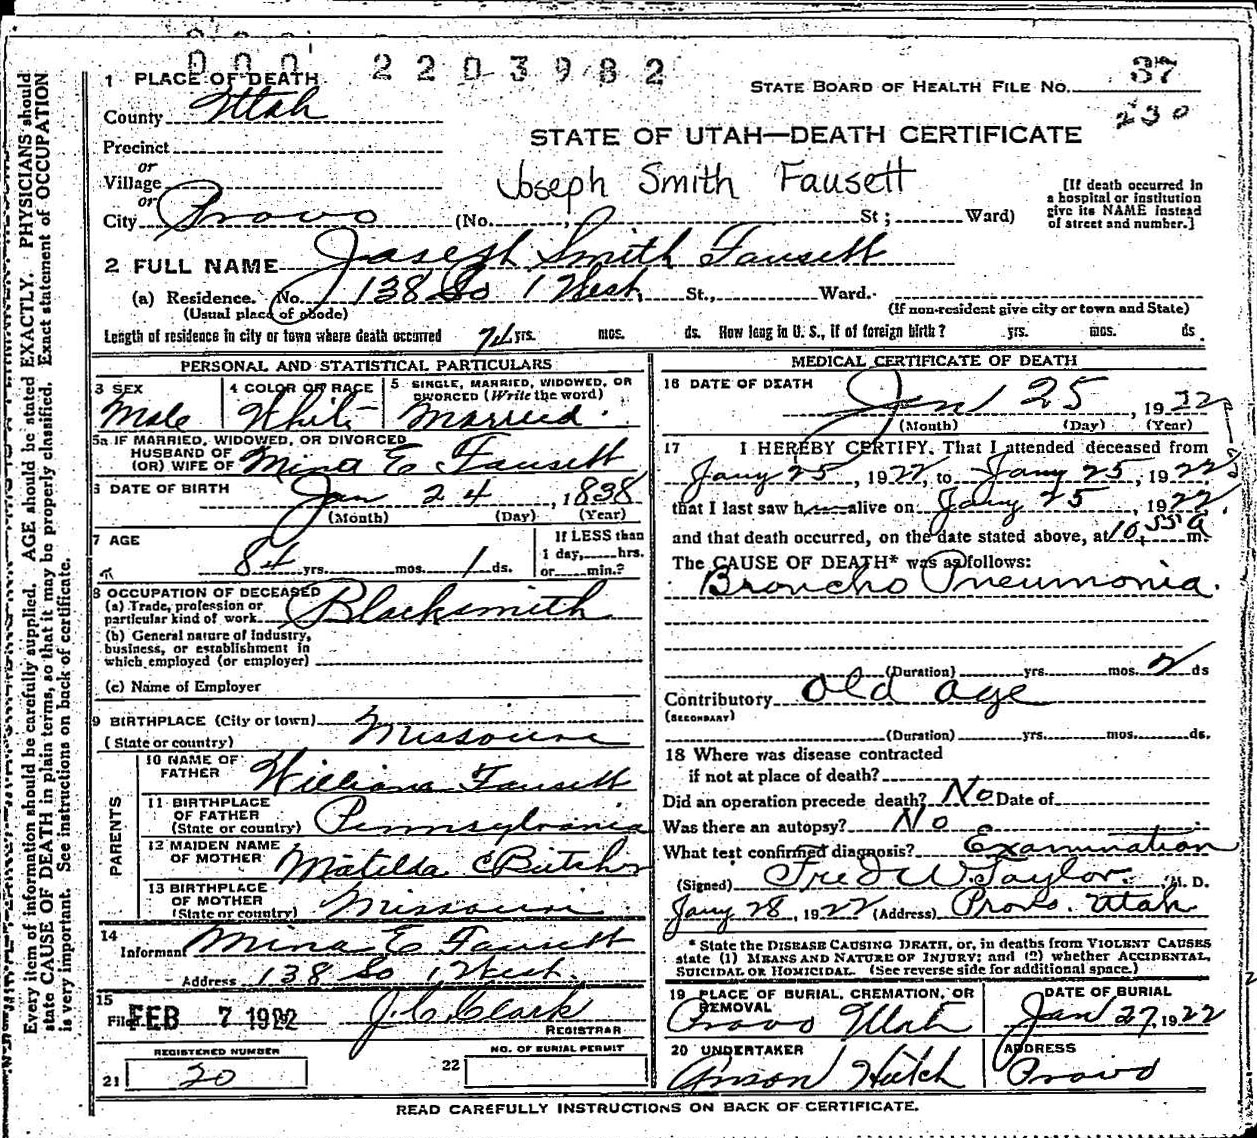 000 2203982
1 PLACE OF DEATH
STATE BOARD OF HEALTH FILE No. 37
County Utah
230
STATE OF UTAH—DEATH CERTIFICATE
Precinct
or
Village
Joseph Smith Fausett
[If death occurred in
a hospital or institution
give its NAME instead
of street and number.]
or
City Provo (No. St; Ward)
2 FULL NAME Joseph Smith Fausett
(a) Residence. No. 138 So 1 West St., Ward.
(Usual place of abode) (If non-resident give city or town and State)
Length of residence in city or town where death occurred 74 yrs. mos. ds. How long in U. S., if of foreign birth? yrs. mos. ds
PERSONAL AND STATISTICAL PARTICULARS
3 SEX 4 COLOR OR RACE 5 SINGLE, MARRIED, WIDOWED, OR
DIVORCED (Write the word)
Male White Married.
5a IF MARRIED, WIDOWED, OR DIVORCED
HUSBAND OF
(OR) WIFE OF Mina E Fausett
6 DATE OF BIRTH Jan 24, 1838
(Month) (Day) (Year)
7 AGE If LESS than
1 day, hrs.
84 yrs. mos. 1 ds. or min.?
8 OCCUPATION OF DECEASED
(a) Trade, profession or
particular kind of work Blacksmith
(b) General nature of industry,
business, or establishment in
which employed (or employer)
(c) Name of Employer
9 BIRTHPLACE (City or town) Missouri
(State or country)
PARENTS
10 NAME OF
FATHER William Fausett
11 BIRTHPLACE
OF FATHER
(State or country) Pennsylvania
12 MAIDEN NAME
OF MOTHER Matilda Butcher
13 BIRTHPLACE
OF MOTHER
(State or country) Missouri
14
Informant Mina E Fausett
Address 138 So 1 West.
15
Filed FEB 7 1922 J. C. Clark
REGISTRAR
REGISTERED NUMBER NO. OF BURIAL PERMIT
21 20 22
MEDICAL CERTIFICATE OF DEATH
16 DATE OF DEATH
Jan 25, 1922
(Month) (Day) (Year)
17 I HEREBY CERTIFY, That I attended deceased from
Jany 25, 1922, to Jany 25, 1922,
that I last saw him alive on Jany 25, 1922,
and that death occurred, on the date stated above, at 10.55 a m.
The CAUSE OF DEATH* was as follows:
Broncho Pneumonia.
(Duration) yrs. mos. 2 ds
Contributory Old age
(SECONDARY)
(Duration) yrs. mos. ds.
18 Where was disease contracted
if not at place of death?
Did an operation precede death? No Date of
Was there an autopsy? No
What test confirmed diagnosis? Examination
(Signed) Fred W. Taylor. M. D.
Jany 28, 1922 (Address) Provo. Utah
* State the DISEASE CAUSING DEATH, or, in deaths from VIOLENT CAUSES
state (1) MEANS AND NATURE OF INJURY; and (2) whether ACCIDENTAL,
SUICIDAL OR HOMICIDAL. (See reverse side for additional space.)
19 PLACE OF BURIAL, CREMATION, OR
REMOVAL DATE OF BURIAL
Provo Utah Jan 27, 1922
20 UNDERTAKER ADDRESS
Anson Hatch Provo
READ CAREFULLY INSTRUCTIONS ON BACK OF CERTIFICATE.
Every item of information should be carefully supplied. AGE should be stated EXACTLY. PHYSICIANS should
state CAUSE OF DEATH in plain terms, so that it may be properly classified. Exact statement of OCCUPATION
is very important. See instructions on back of certificate.